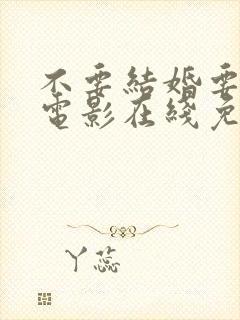 不要結婚要
電影在綫免
丫蕊